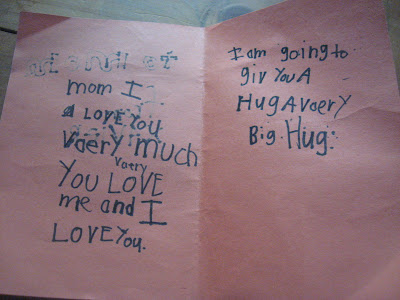 mom I
a LOVE YOU
Vaery much
Vaery
YOU LOVE
me and I
LOVE YOU.
I am going to
giv YOU A
HUG A Vaery
Big HUG.